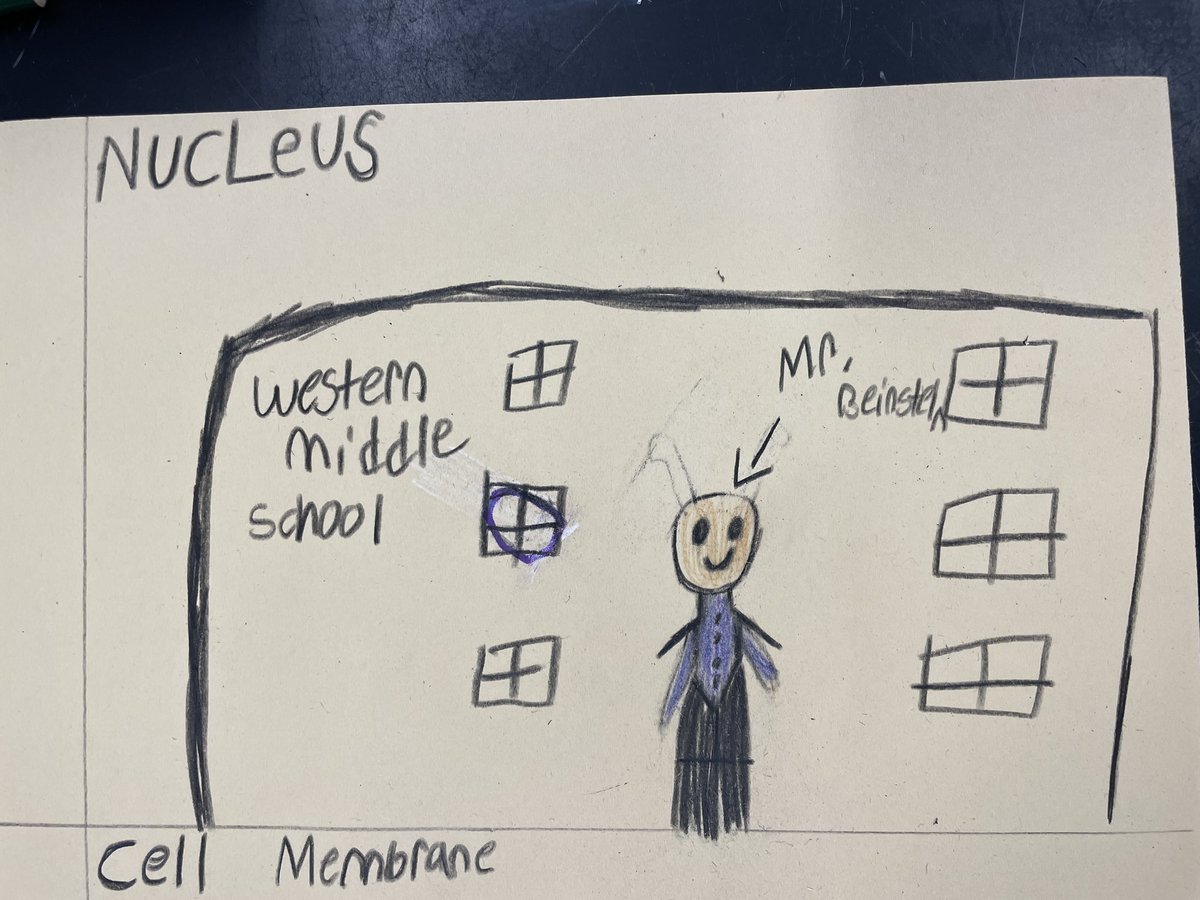 NUCLeUS
western
middle
school
Mr.
Beinstein
Cell Membrane